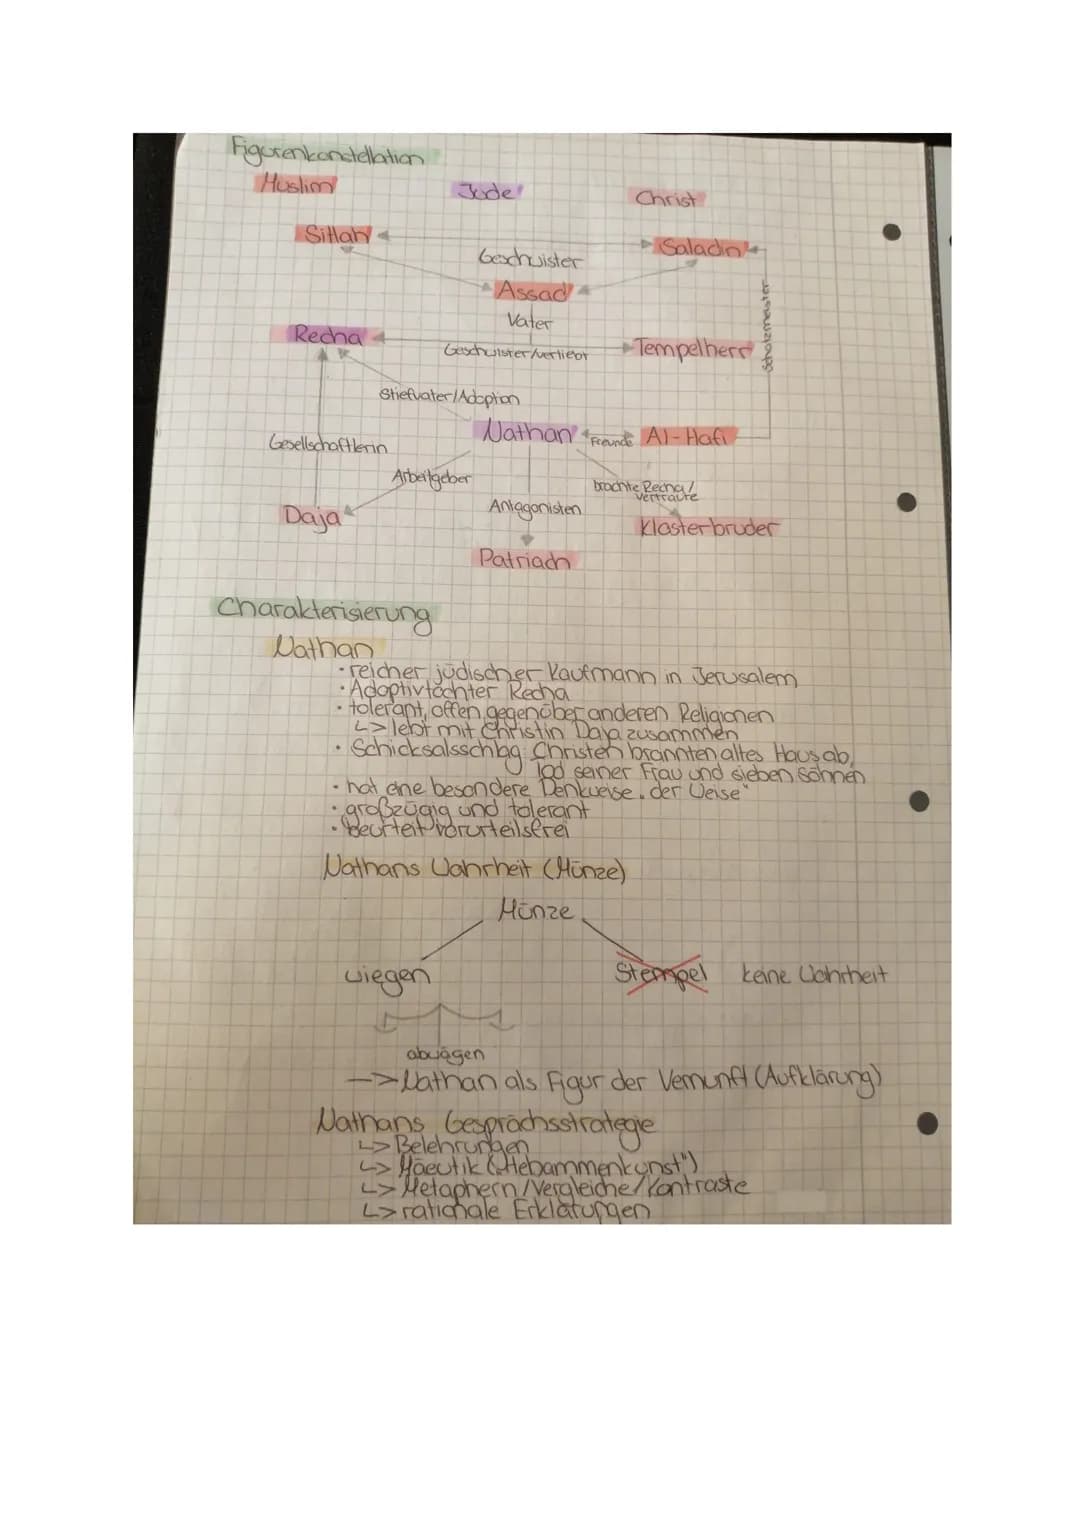 Figurenkonstellation
Muslim Jude Christ
Sittah Saladin
Geschwister
Assad
Schatzmeister
Vater
Recha Tempelherr
Geschwister/verliebt
Stiefvater/Adoption
Nathan Freunde Al-Hafi
Gesellschafterin
Arbeitgeber brachte Recha/
vertraute
Antagonisten
Daja Klosterbruder
Patriach
Charakterisierung
Nathan
· reicher jüdischer Kaufmann in Jerusalem
· Adoptivtochter Recha
· tolerant, offen gegenüber anderen Religionen
↳ lebt mit Christin Daja zusammen
· Schicksalsschlag: Christen brannten altes Haus ab,
Tod seiner Frau und sieben Söhnen
· hat eine besondere Denkweise „der Weise"
· großzügig und tolerant
· beurteilt vorurteilsfrei
Nathans Wahrheit (Münze)
Münze
wiegen Stempel keine Wahrheit
abwägen
—> Nathan als Figur der Vernunft (Aufklärung)
Nathans Gesprächsstrategie
↳ Belehrungen
↳ Mäeutik („Hebammenkunst")
↳ Metaphern/Vergleiche/Kontraste
↳ rationale Erklärungen